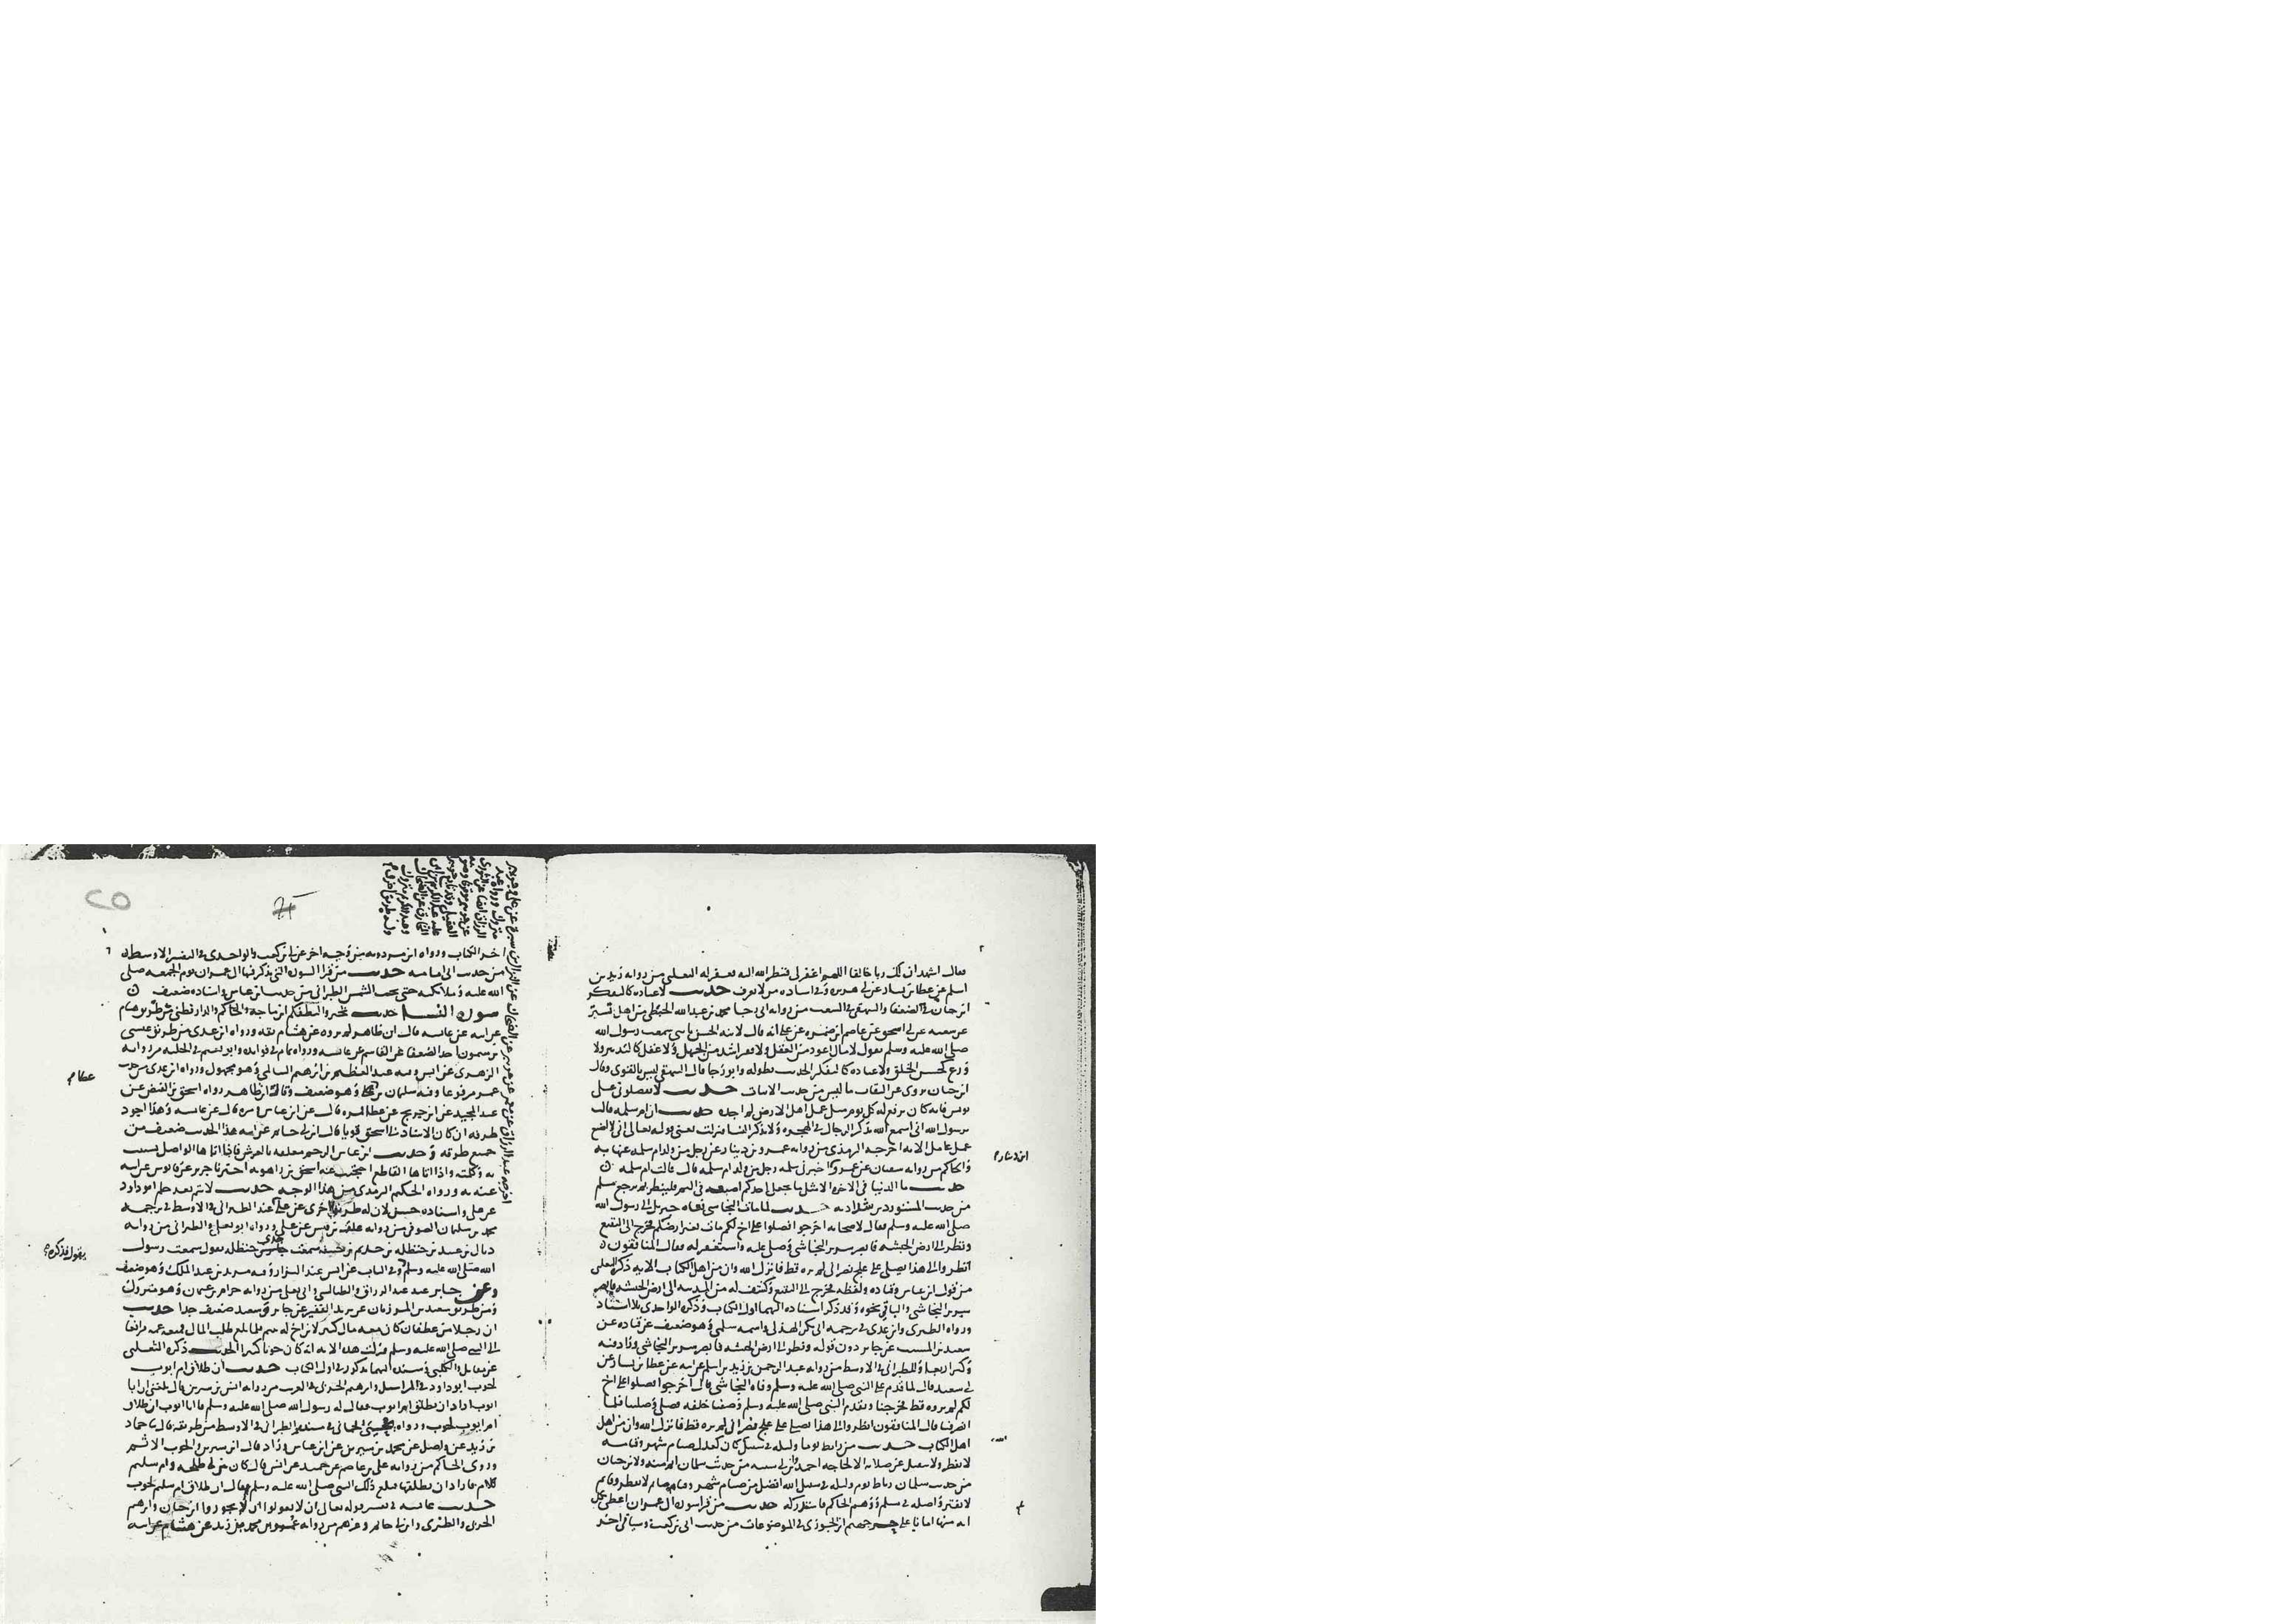 فقال اشهد ان لك ربا خالقا اللهم اغفر لي فنظر الله اليه فغفر له الثعلبي من رواية زيد بن
اسلم عن عطا بن يسار عن ابي هريرة وفي اسناده من لا يعرف حديث لا عبادة كالتفكر
ابن حبان في الضعفا والبيهقي في الشعب من رواية ابي رجا محمد بن عبد الله الحبطي من اهل تستر
عن شعبة عن ابي اسحق عن عاصم بن ضمرة عن علي انه قال لابنه الحسن يا بني سمعت رسول الله
صلى الله عليه وسلم يقول لا مال اعود من العقل ولا فقر اشد من الجهل ولا عقل كالتدبير ولا
ورع كحسن الخلق ولا عبادة كالتفكر الحديث بطوله وابو رجا قال البيهقي ليس بالقوي وقال
ابن حبان يروي عن الثقات ما ليس من حديث الاثبات حديث لا تفضلوني على
يونس فانه كان يرفع له كل يوم مثل عمل اهل الارض لم اجده حديث ان ام سلمة قالت
يرسول الله اني اسمع الله يذكر الرجال في الهجرة ولا يذكر النسا فنزلت يعني قوله تعالى اني لا اضيع
عمل عامل الاية اخرجه الترمذي من رواية عمرو بن دينار عن رجل من ولد ام سلمة عنها به
والحاكم من رواية سفيان عن عمرو اخبرني سلمة رجل من ولد ام سلمة قال قالت ام سلمة
حديث ما الدنيا في الاخرة الا مثل ما يجعل احدكم اصبعه في اليم فلينظر بم يرجع مسلم
من حديث المستورد بن شداد به حديث لما مات النجاشي نعاه جبريل الى رسول الله
صلى الله عليه وسلم فقال لاصحابه اخرجوا فصلوا على اخ لكم مات بغير ارضكم فخرج الى البقيع
ونظر الى ارض الحبشة فابصر سرير النجاشي وصلى عليه واستغفر له فقال المنافقون
انظروا الى هذا يصلي على علج نصراني لم يره قط فانزل الله وان من اهل الكتاب الاية ذكره الثعلبي
من قول ابن عباس وقتادة ولفظه فخرج الى البقيع وكشف له من المدينة الى ارض الحبشة فابصر
سرير النجاشي والباقي نحوه وقد ذكر اسناده اليهما اول الكتاب وذكره الواحدي بلا اسناد
ورواه الطبري وابن عدي في ترجمة ابي بكر الهذلي واسمه سلمى وهو ضعيف عن قتادة عن
سعيد بن المسيب عن جابر دون قوله ونظر الى ارض الحبشة فابصر سرير النجاشي وزاد فيه
وكبر اربعا وللطبراني في الاوسط من رواية عبد الرحمن بن زيد بن اسلم عن ابيه عن عطا بن يسار عن
ابي سعيد قال لما قدم على النبي صلى الله عليه وسلم وفاة النجاشي قال اخرجوا فصلوا على اخ
لكم لم تروه قط فخرجنا وتقدم النبي صلى الله عليه وسلم وصفنا خلفه فصلى وصلينا فلما
انصرفنا قال المنافقون انظروا الى هذا يصلي على علج نصراني لم يره قط فانزل الله وان من اهل
اهل الكتاب حديث من رابط يوما وليلة في سبيل الله كان كعدل صيام شهر وقيامه
لا يفطر ولا ينفتل عن صلاته الا لحاجة احمد وابن ابي شيبة من حديث سلمان اتم منه ولابن حبان
من حديث سلمان رباط يوم وليلة في سبيل الله افضل من صيام شهر وقيامه صايم لا يفطر وقايم
لا يفتر واصله في مسلم ووهم الحاكم فاستدركه حديث من قرا سورة ال عمران اعطي بكل
اية منها امانا على جسر جهنم ابن الجوزي في الموضوعات من حديث ابي بن كعب وسياتي اخر
اخر الكتاب ورواه ابن مردويه من وجه اخر عن ابي بن كعب والواحدي في التفسير الاوسط
من حديث ابي امامة حديث من قرا السورة التي يذكر فيها ال عمران يوم الجمعة صلى
الله عليه وملائكته حتى تجب الشمس الطبراني من حديث ابن عباس واسناده ضعيف
سورة النسا حديث تخيروا لنطفكم ابن ماجة والحاكم والدارقطني من طريق هشام
عن ابيه عن عائشة قال ابن طاهر لم يروه عن هشام ثقة ورواه ابن عدي من طريق عيسى
بن ميمون احد الضعفا عن القاسم عن عائشة ورواه تمام في فوائده وابو نعيم في الحلية من رواية
الزهري عن انس وفيه عبد العظيم بن ابرهيم السالمي وهو مجهول ورواه ابن عدي من حديث
عمر مرفوعا وفيه سليمان بن عطا وهو ضعيف وقال ابن طاهر رواه اسحق بن الفيض عن
عبد المجيد عن ابن جريج عن عطا فمرة قال عن ابن عباس ومرة قال عن عائشة وهذا اجود
طرقه ان كان الاسناد الى اسحق قويا قال ابن ابي حاتم عن ابيه هذا الحديث ضعيف من
جميع طرقه وحديث ابن عباس الرحم معلقة بالعرش فاذا اتاها الواصل بشت
به وكلمته واذا اتاها القاطع احتجبت عنه اسحق بن راهويه اخبرنا جرير عن قابوس عن ابيه
عنه به ورواه الحكيم الترمذي من هذا الوجه حديث لا يتم بعد حلم ابو داود
عن علي واسناده حسن لان له طريق اخرى عن علي عند الطبراني في الاوسط في ترجمة
محمد بن سليمان الصوفي من رواية علقمة بن قيس عن علي ورواه ابو يعلى والطبراني من رواية
ذيال بن عبيد بن حنظلة بن حذيم بن حنيفة سمعت جدي حنظلة يقول سمعت رسول
الله صلى الله عليه وسلم وفي الباب عن انس عند البزار وفيه يزيد بن عبد الملك وهو ضعيف
وعن جابر عند عبد الرزاق والطيالسي وابي يعلى من رواية حرام بن عثمان وهو متروك
ومن طريق سعيد بن المرزبان عن يزيد الفقير عن جابر وسعيد ضعيف جدا حديث
ان رجلا من غطفان كان معه مال كبير لابن اخ له يتيم فلما بلغ طلب المال فمنعه عمه فترافعا
الى النبي صلى الله عليه وسلم فنزلت هذه الاية انه كان حوبا كبيرا الحديث ذكره الثعلبي
عن مقاتل والكلبي وسنده اليهما مذكور في اول الكتاب حديث ان طلاق ام ايوب
لحوب ابو داود في المراسيل وابرهيم الحربي في الغريب من رواية انس بن سيرين قال بلغني ان ابا
ايوب اراد ان يطلق ام ايوب فقال له رسول الله صلى الله عليه وسلم يا ابا ايوب ان طلاق
ام ايوب لحوب ورواه يحيى الحماني في مسنده والطبراني في الاوسط من طريقه قال نا حماد
بن زيد عن واصل عن محمد بن سيرين عن ابن عباس وزاد قال ابن سيرين والحوب الاثم
وروى الحاكم من رواية علي بن عاصم عن حميد عن انس قال كان بين ابي طلحة وام سليم
كلام فاراد ان يطلقها فبلغ ذلك النبي صلى الله عليه وسلم فقال ان طلاق ام سليم لحوب
حديث عائشة في تفسير قوله تعالى ان لا تعولوا ان لا تجوروا ابن حبان وابرهيم
الحربي والطبري وابن ابي حاتم وغيرهم من رواية عمر بن محمد بن زيد عن هشام عن ابيه